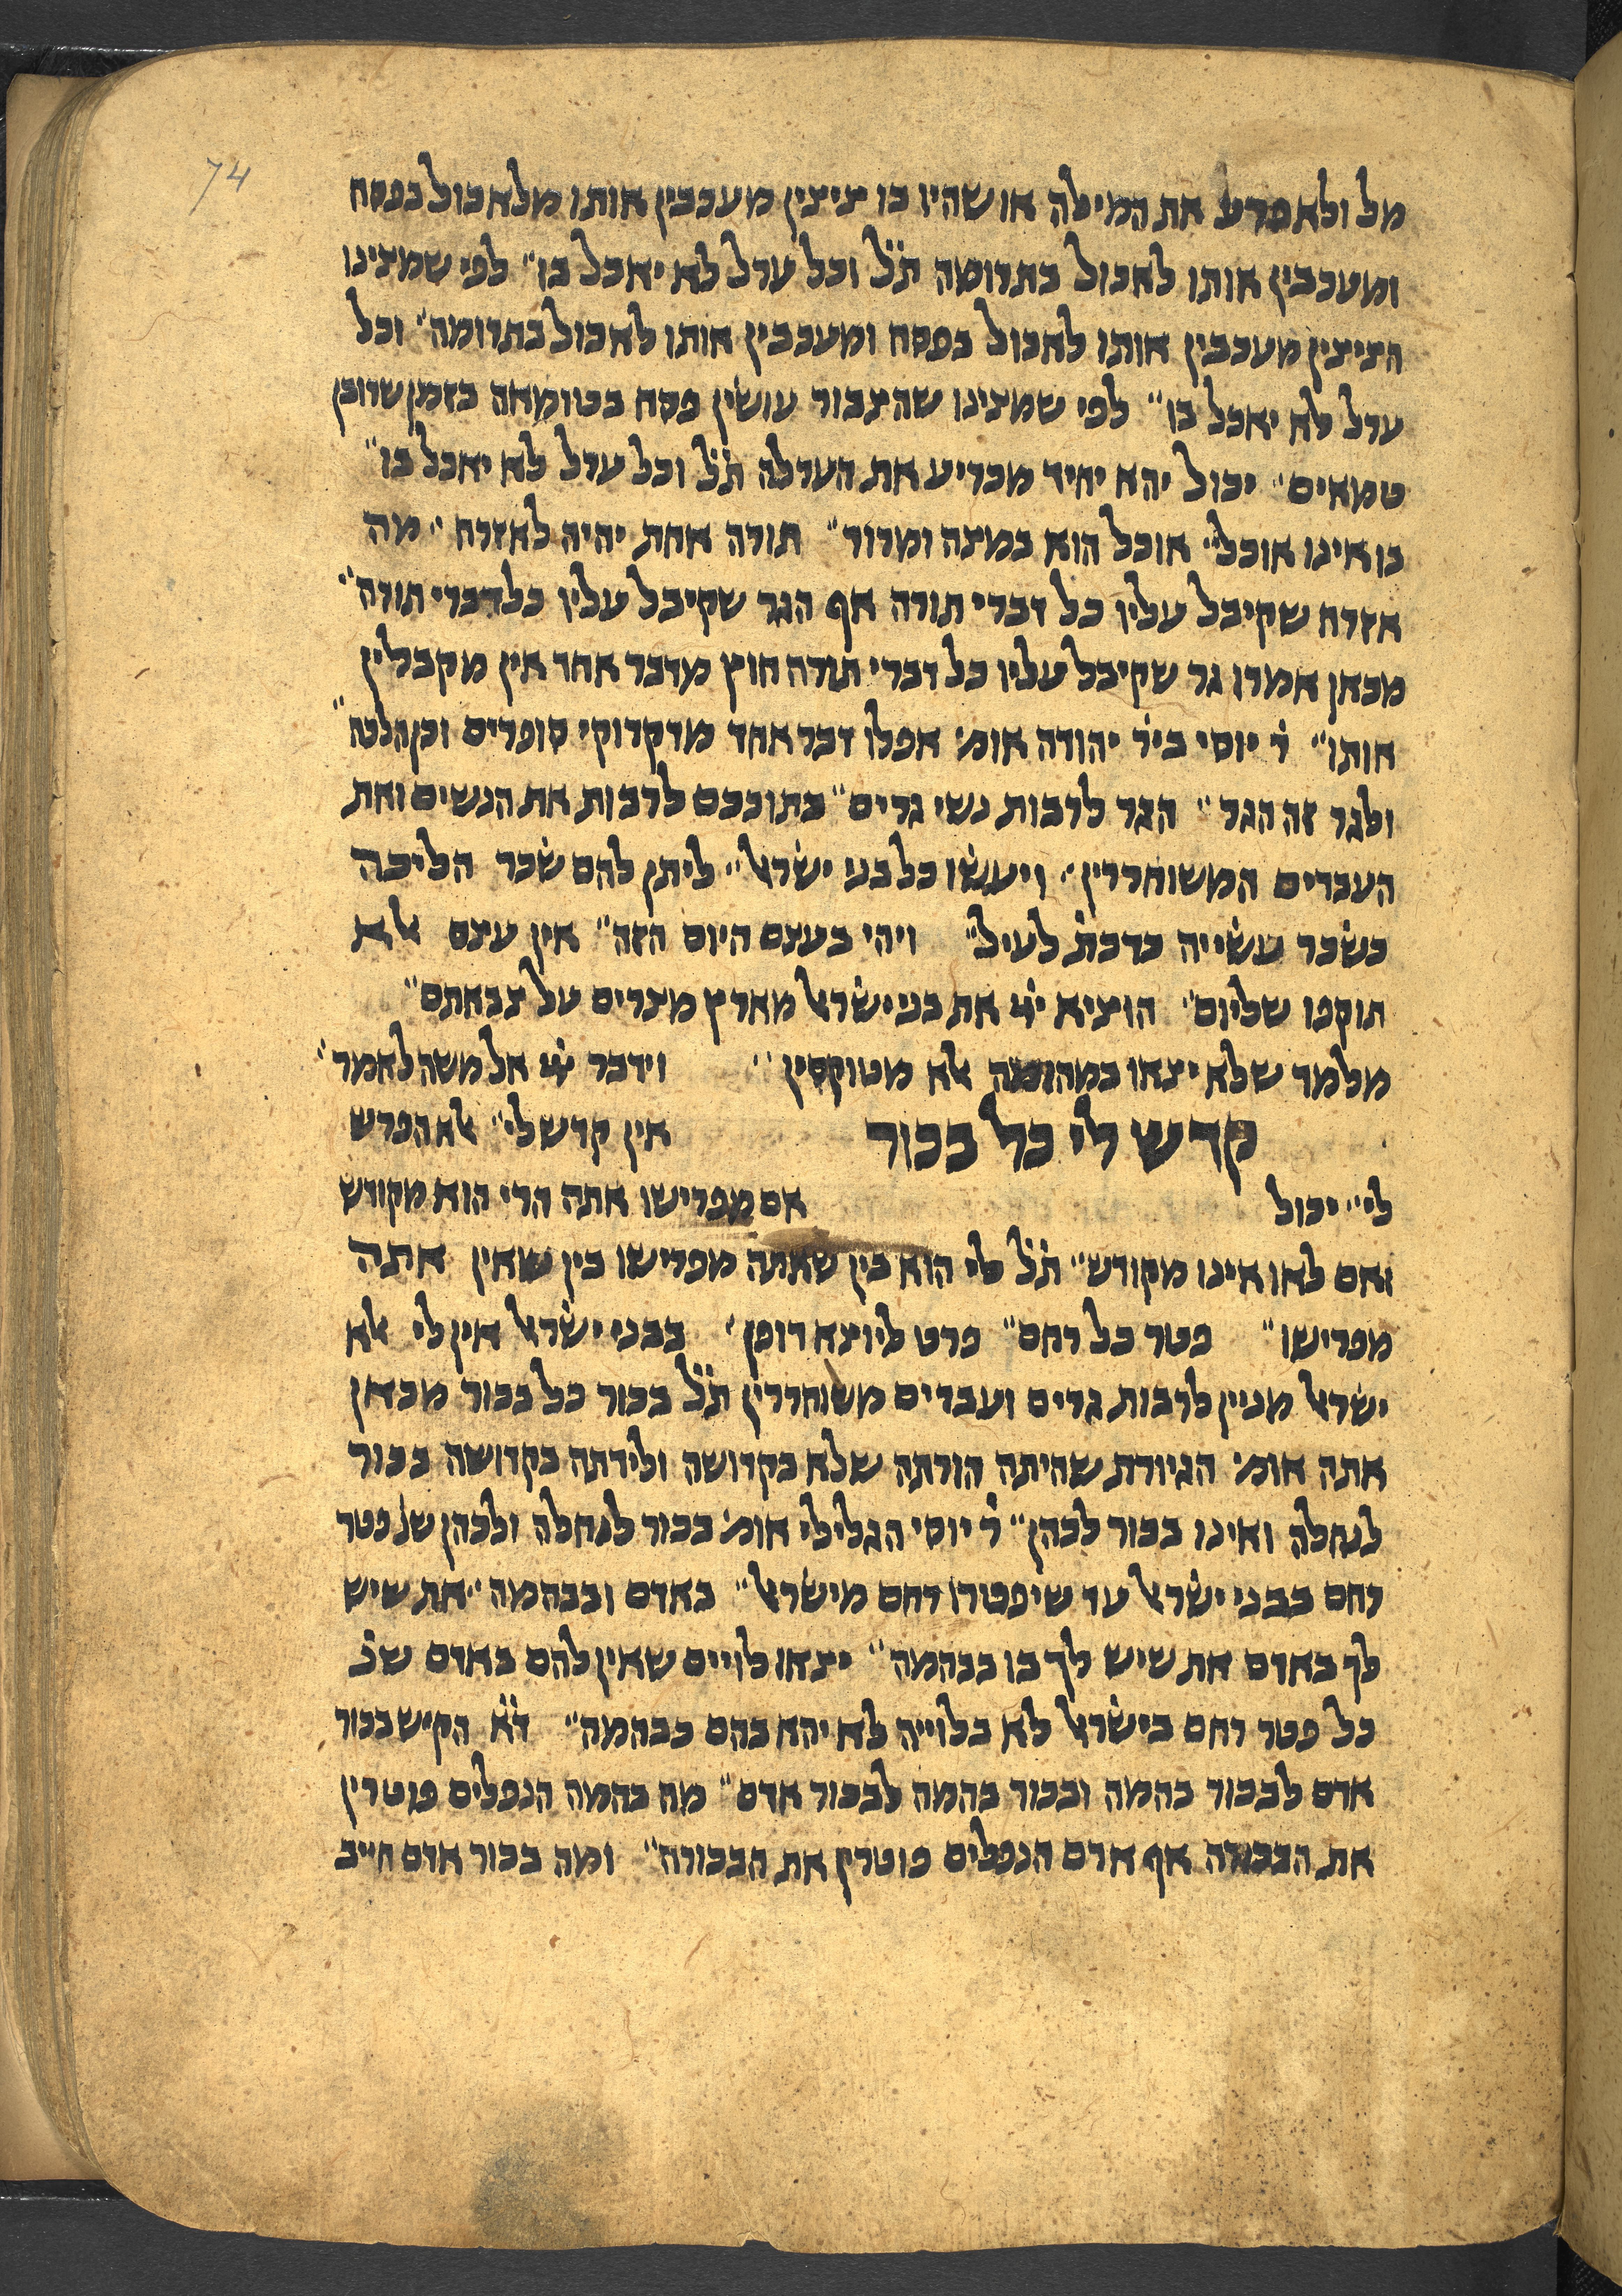 74
מל ולא פרע את המילה או שהיו בו ציצין מעכבין אותו מלאכול בפסח
ומעכבין אותו לאכול בתרומה ת̇ל̇ וכל ערל לא יאכל בו״ לפי שמצינו
הציצין מעכבין אותו לאכול בפסח ומעכבין אותו לאכול בתרומה״ וכל
ערל לא יאכל בו״ לפי שמצינו שהצבור עושין פסח בטומאה בזמן שרובן
טמאים״ יכול יהא יחיד מכריע את הערלה ת̇ל̇ וכל ערל לא יאכל בו״
בו אינו אוכל״ אוכל הוא במצה ומרור״ תורה אחת יהיה לאזרח״ מה
אזרח שקיבל עליו כל דברי תורה אף הגר שקיבל עליו כל דברי תורה״
מכאן אמרו גר שקיבל עליו כל דברי תורה חוץ מדבר אחד אין מקבלין
אותו״ ר̇ יוסי ביר̇ יהודה אומ׳ אפלו דבר אחד מדקדוקי סופרים
ולגר זה הגר״ הגר לרבות נשי גרים״ בתוככם לרבות את הנשים ואת
העבדים המשוחררין״ ויעשו כל בני ישראל״ ליתן להם שכר הליכה
כשכר עשייה כדכת̇ לעיל״ ויהי בעצם היום הזה״ אין עצם אלא
תוקפו שליום״ הוציא ייי את בני ישראל מארץ מצרים על צבאתם״
מלמד שלא יצאו במהומה אלא מטוקסין״ וידבר ייי אל משה לאמר״
קדש לי כל בכור אין קדש לי״ אלא הפרש
לי״ יכול אם מפרישו אתה הרי הוא מקודש
ואם לאו אינו מקודש״ ת̇ל̇ לי הוא בין שאתה מפרישו בין שאין אתה
מפרישו״ פטר כל רחם״ פרט ליוצא דופן״ בבני ישראל אין לי אלא
ישראל מניין לרבות גרים ועבדים משוחררין ת̇ל̇ בכור כל בכור מכאן
אתה אומ׳ הגיורת שהיתה הורתה שלא בקדושה ולידתה בקדושה בכור
לנחלה ואינו בכור לכהן״ ר̇ יוסי הגלילי אומ׳ בכור לנחלה ולכהן שנ̇ פטר
רחם בבני ישראל עד שיפטרו רחם מישראל״ באדם ובבהמה״ את שיש
לך באדם את שיש לך בו בבהמה״ יצאו לויים שאין להם באדם שנ̇
כל פטר רחם בישראל לא בלוייה לא יהא בהם בבהמה״ ד̇א̇ הקיש בכור
אדם לבכור בהמה ובכור בהמה לבכור אדם״ מה בהמה הנפלים פוטרין
את הבכורה אף אדם הנפלים פוטרין את הבכורה״ ומה בכור אדם חייב